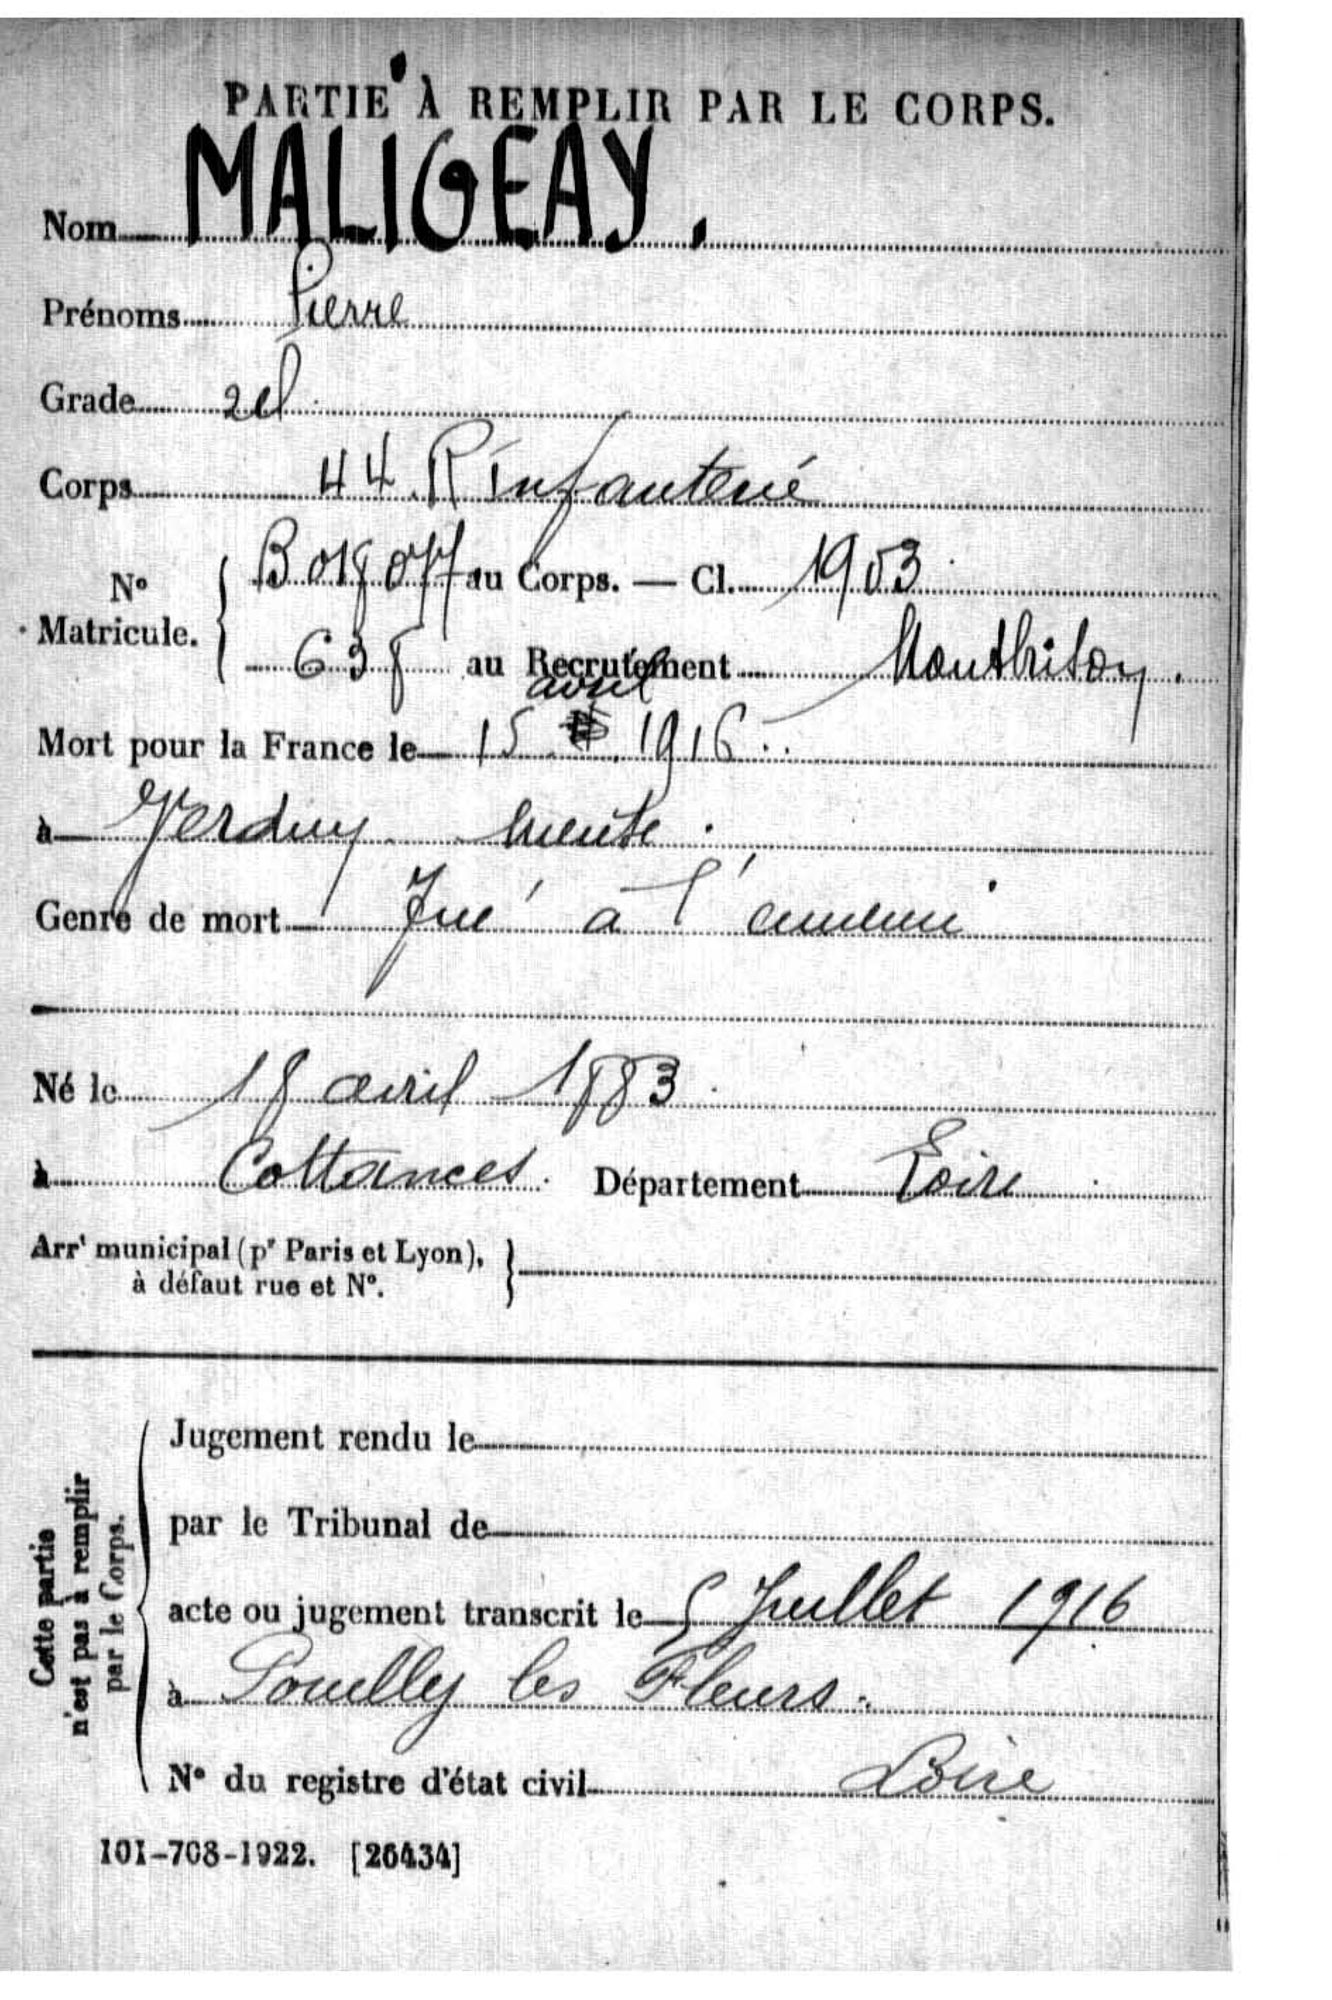 PARTIE À REMPLIR PAR LE CORPS.
Nom MALIGEAY.
Prénoms Pierre
Grade 2el
Corps 44 R infanterie
N° Matricule. { au Corps. — Cl. 1903
638 au Recrutement Montbrison.
avril
Mort pour la France le 15 1916
à Verdun Meuse.
Genre de mort Tué à l'ennemi
Né le 18 avril 1883
à Cottances. Département Loire
Arrt municipal (pr Paris et Lyon), }
à défaut rue et N°.
Cette partie n'est pas à remplir par le Corps.
Jugement rendu le
par le Tribunal de
acte ou jugement transcrit le 5 Juillet 1916
à Pouilly les Fleurs.
N° du registre d'état civil Loire
101-708-1922. [26434]